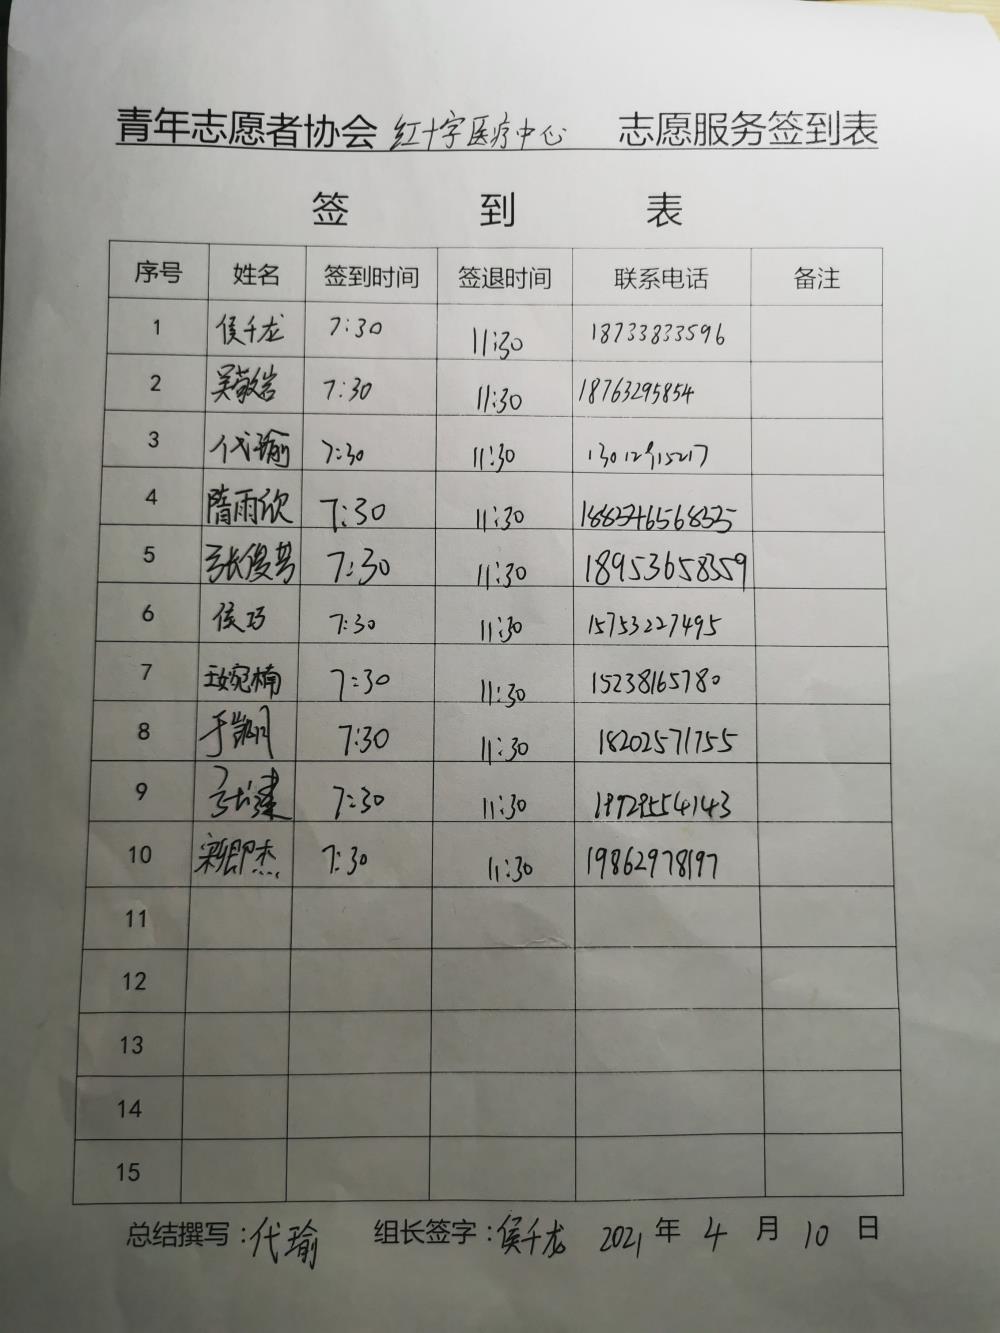 青年志愿者协会 红十字医疗中心 志愿服务签到表
签 到 表
序号 姓名 签到时间 签退时间 联系电话 备注
1 侯千龙 7:30 11:30 18733833596
2 吴敬岩 7:30 11:30 18763295854
3 代瑜 7:30 11:30
4 隋雨欣 7:30 11:30
5 张俊芳 7:30 11:30 18953658359
6 侯巧 7:30 11:30 15753227495
7 7:30 11:30 15238165780
8 于凯月 7:30 11:30 18202571755
9 7:30 11:30
10 7:30 11:30 19862978197
11
12
13
14
15
总结撰写:代瑜 组长签字:侯千龙 2021 年 4 月 10 日